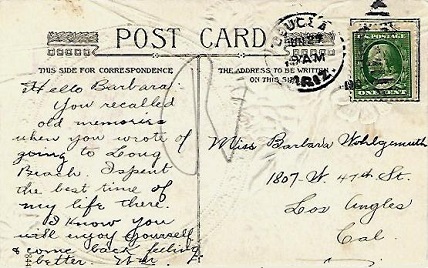 POST CARD
THIS SIDE FOR CORRESPONDENCE
THE ADDRESS TO BE WRITTEN
ON THIS SIDE
JUN
AM
ARIZ.
U.S. POSTAGE
ONE CENT
Hello Barbara:
You recalled
old memories
when you wrote of
going to Long
Beach. I spent
the best time of
my life there.
I know you
will enjoy yourself
& come back feeling
better.
Miss Barbara Wohlgemuth
1807-W. 47th St.
Los Angles
Cal.